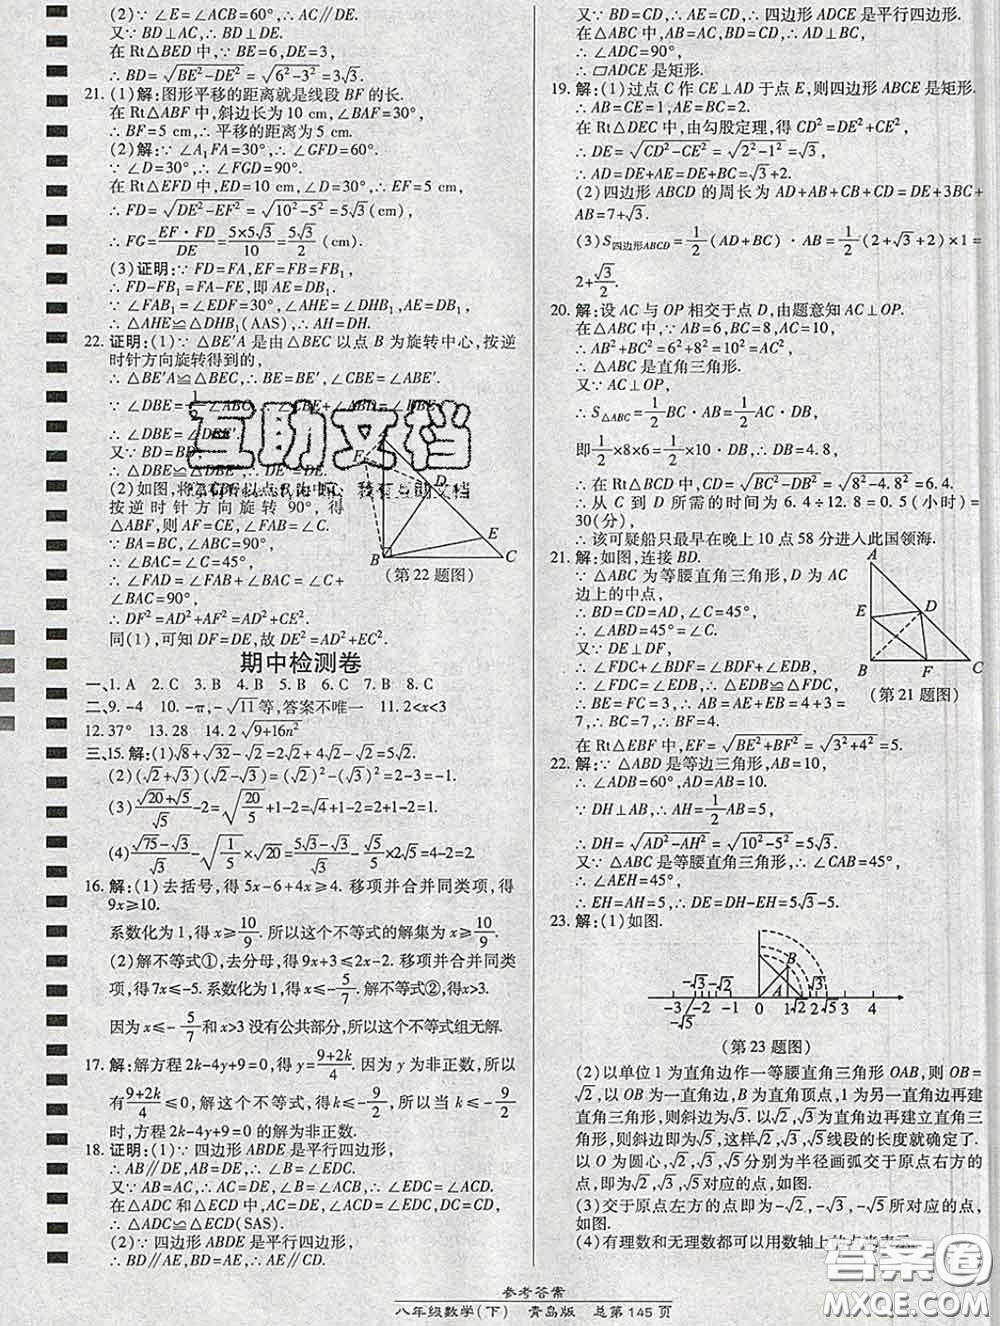 (2)∵∠E=∠ACB=60°,∴AC∥DE.
又∵BD⊥AC,∴BD⊥DE.
在Rt△BED中,∵BE=6,DE=3,
∴BD=√(BE²-DE²)=√(6²-3²)=3√3.
21. (1)解:图形平移的距离就是线段BF的长.
在Rt△ABF中,斜边长为10 cm,∠BAF=30°,
∴BF=5 cm,∴平移的距离为5 cm.
(2)解:∵∠A₁FA=30°,∴∠GFD=60°.
∵∠D=30°,∴∠FGD=90°.
在Rt△EFD中,ED=10 cm,∠D=30°,∴EF=5 cm,
∴FD=√(DE²-EF²)=√(10²-5²)=5√3(cm),
∴FG=EF·FD/DE=5×5√3/10=5√3/2(cm).
(3)证明:∵FD=FA,EF=FB=FB₁,
∴FD-FB₁=FA-FE,即AE=DB₁.
∵∠FAB₁=∠EDF=30°,∠AHE=∠DHB₁,AE=DB₁,
∴△AHE≌△DHB₁(AAS),∴AH=DH.
22. 证明:(1)∵△BE′A是由△BEC以点B为旋转中心,按逆
时针方向旋转得到的,
∴△BE′A≌△BEC,∴BE=BE′,∠CBE=∠ABE′.
∵∠DBE=1/2∠ABC,
∴∠DBE=∠DBE′.
又∵BD=BD,
∴DE′=DE.
(2)如图,将△CBE以点B为中心
按逆时针方向旋转90°,得
△ABF,则AF=CE,∠FAB=∠C.
∵BA=BC,∠ABC=90°,
∴∠BAC=∠C=45°,
∴∠FAD=∠FAB+∠BAC=
∠BAC=90°,
∴DF²=AD²+AF²=AD²+CE².
同(1),可知DF=DE,故DE²=AD²+EC².
F
D
E
B
C
(第22题图)
期中检测卷
一、1. A 2. C 3. B 4. B 5. B 6. C 7. B 8. C
二、9. -4 10. -π,-√11等,答案不唯一 11. 2<x<3
12. 37° 13. 28 14. 2√(9+16n²)
三、15. 解:(1)√8+√32-√2=2√2+4√2-√2=5√2.
(2)(√2+√3)(√2-√3)=(√2)²-(√3)²=2-3=-1.
(3)(√20+√5)/√5-2=√(20/5)+1-2=√4+1-2=2+1-2=1.
(4)(√75-√3)/√3-√(1/5)×√20=(5√3-√3)/√3-√5/5×2√5=4-2=2.
16. 解:(1)去括号,得5x-6+4x≥4.移项并合并同类项,得
9x≥10.
系数化为1,得x≥10/9.所以这个不等式的解集为x≥10/9.
(2)解不等式①,去分母,得9x+3≤2x-2.移项并合并同类
项,得7x≤-5.系数化为1,得x≤-5/7.解不等式②,得x>3.
因为x≤-5/7和x>3没有公共部分,所以这个不等式组无解.
17. 解:解方程2k-4y+9=0,得y=(9+2k)/4.因为y为非正数,所以
有(9+2k)/4≤0,解这个不等式,得k≤-9/2.所以当k≤-9/2
时,方程2k-4y+9=0的解为非正数.
18. 证明:(1)∵四边形ABDE是平行四边形,
∴AB∥DE,AB=DE,∴∠B=∠EDC.
又∵AB=AC,∴AC=DE,∠B=∠ACB,∴∠EDC=∠ACD.
在△ADC和△ECD中,AC=DE,∠ACD=∠EDC,DC=CD,
∴△ADC≌△ECD(SAS).
(2)∵四边形ABDE是平行四边形,
∴BD∥AE,BD=AE,∴AE∥CD.
又∵BD=CD,∴AE=CD,∴四边形ADCE是平行四边形.
在△ABC中,AB=AC,BD=CD,∴AD⊥BC,
∴∠ADC=90°,
∴▱ADCE是矩形.
19. 解:(1)过点C作CE⊥AD于点E,则四边形ABCE是矩形.
∴AB=CE=1,AE=BC=2.
在Rt△DEC中,由勾股定理,得CD²=DE²+CE²,
∴DE=√(CD²-CE²)=√(2²-1²)=√3,
∴AD=DE+AE=DE+BC=2+√3.
(2)四边形ABCD的周长为AD+AB+CB+CD=DE+3BC+
AB=7+√3.
(3)S四边形ABCD=1/2(AD+BC)·AB=1/2(2+√3+2)×1=
2+√3/2.
20. 解:设AC与OP相交于点D,由题意知AC⊥OP.
在△ABC中,∵AB=6,BC=8,AC=10,
∴AB²+BC²=6²+8²=10²=AC²,
∴△ABC是直角三角形.
又∵AC⊥OP,
∴S△ABC=1/2BC·AB=1/2AC·DB,
即1/2×8×6=1/2×10·DB,∴DB=4.8,
∴在Rt△BCD中,CD=√(BC²-BD²)=√(8²-4.8²)=6.4.
∴从C到D所需的时间为6.4÷12.8=0.5(小时)=
30(分),
∴该可疑船只最早在晚上10点58分进入此国领海.
21. 解:如图,连接BD.
∵△ABC为等腰直角三角形,D为AC
边上的中点,
∴BD=CD=AD,∠C=45°,
∴∠ABD=45°=∠C.
又∵DE⊥DF,
∴∠FDC+∠BDF=∠EDB+∠BDF,
∴∠FDC=∠EDB,
∴△EDB≌△FDC,
∴BE=FC=3,∴AB=AE+BE=4+3=
7,∴BC=7,∴BF=4.
在Rt△EBF中,EF=√(BE²+BF²)=√(3²+4²)=5.
A
E
D
B
F
C
(第21题图)
22. 解:∵△ABD是等边三角形,AB=10,
∴∠ADB=60°,AD=AB=10.
∵DH⊥AB,∴AH=1/2AB=5,
∴DH=√(AD²-AH²)=√(10²-5²)=5√3.
又∵△ABC是等腰直角三角形,∴∠CAB=45°,
∴∠AEH=45°,
∴EH=AH=5,∴DE=DH-EH=5√3-5.
23. 解:(1)如图.
B
A
-√3 -√2
√3 √5
-3 -2 -1 0 1 √2 2 3 4
-√5
(第23题图)
(2)以单位1为直角边作一等腰直角三角形OAB,则OB=
√2,以√2为一直角边,B为直角顶点,1为另一直角边再建
直角三角形,则斜边为√3.以√3为直角边再建立直角三角
形,则斜边为√5,这样√2,√3,√5线段的长度就确定了.
以O为圆心,√2,√3,√5分别为半径画弧交于原点右方的
点,即为√2,√3,√5对应的点,如图.
(3)交于原点左方的点即为-√2,-√3,-√5所对应的点,
如图.
(4)有理数和无理数都可以用数轴上的点来表示.
参考答案
八年级数学(下) 青岛版 总第145页
互助文档
答案圈
MXQE.COM